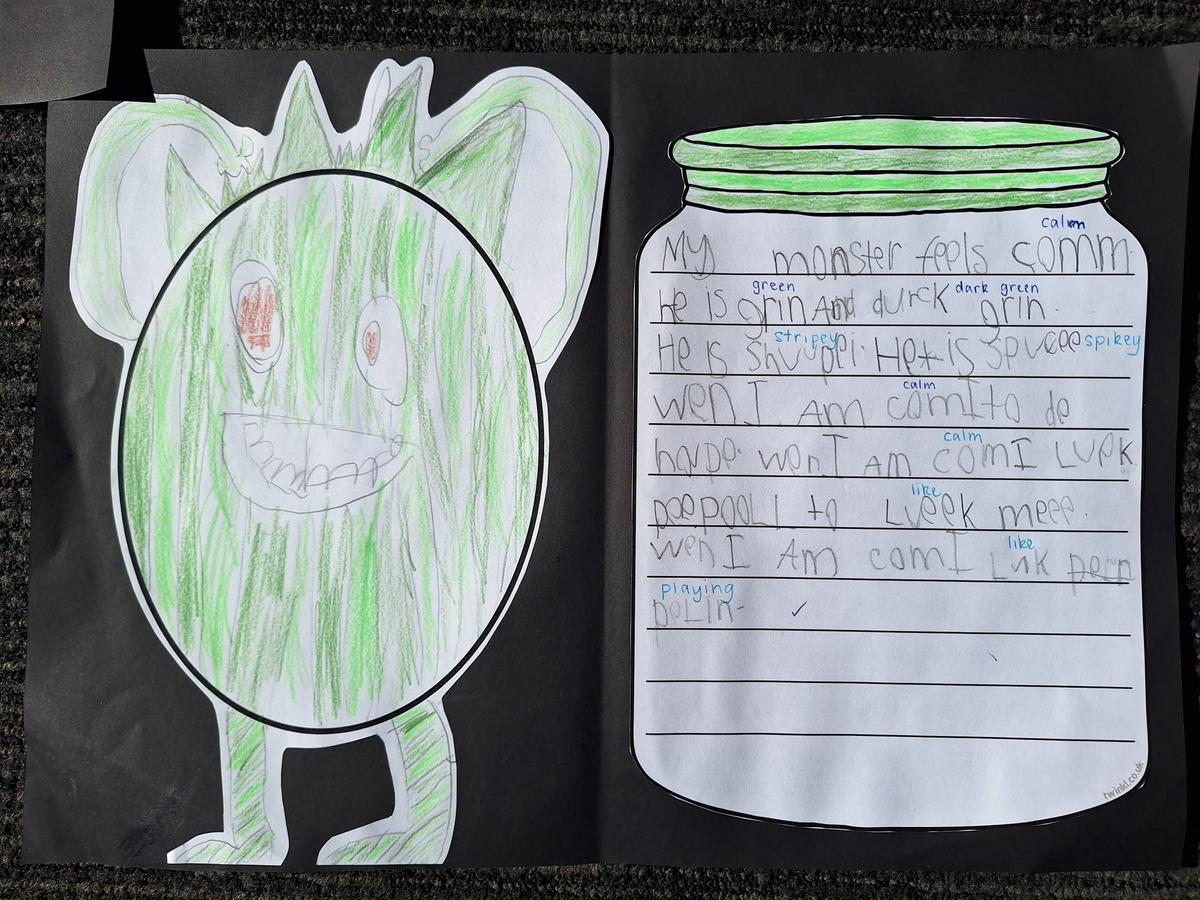 calm
My monster feels comm.
green dark green
He is grin And durck grin.
stripey spikey
He is Shvupei. He is Spvcee
calm
wen I Am comI to de
calm
hapde. wen I Am comI Luek
like
peepooll to Lueek meee.
like
wen I Am comI Luk perp
playing
peLin.
twinkl.co.uk